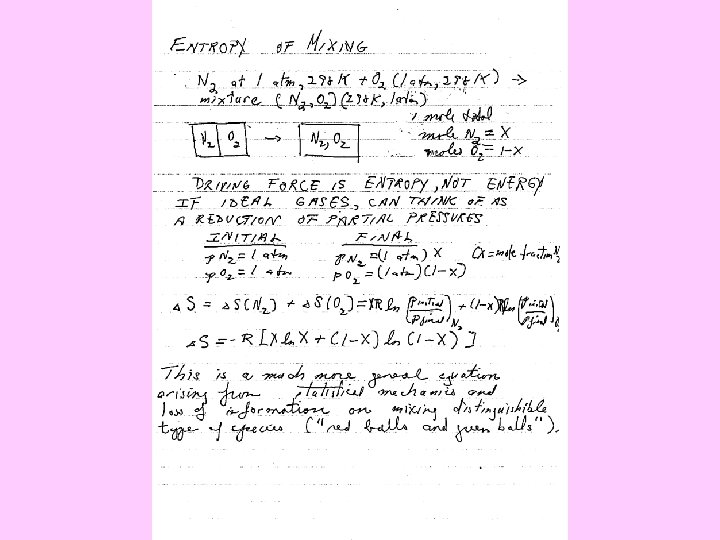 ENTROPY OF MIXING
N2 at 1 atm, 298K + O2 (1 atm, 298K) →
mixture (N2, O2) (298K, 1atm)
1 mole total
mole N2 = X
moles O2 = 1-X
N2 | O2 → N2, O2
DRIVING FORCE IS ENTROPY, NOT ENERGY
IF IDEAL GASES, CAN THINK OF AS
A REDUCTION OF PARTIAL PRESSURES
INITIAL FINAL
pN2 = 1 atm pN2 = (1 atm) X (X = mole fraction N2
pO2 = 1 atm pO2 = (1atm)(1-x)
ΔS = ΔS(N2) + ΔS(O2) = XR ln (Pinitial/Pfinal)N2 + (1-x)R ln (Pinitial/Pfinal)
ΔS = -R [X ln X + (1-X) ln (1-X)]
This is a much more general equation
arising from statistical mechanics and
loss of information on mixing distinguishible
types of species ("red balls and green balls").